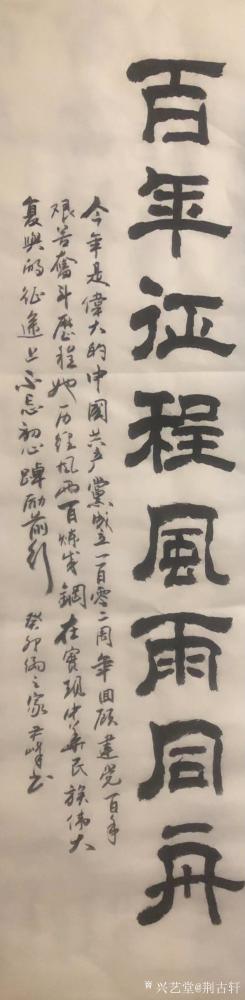 百年征程風雨同舟
今年是偉大的中國共产黨成立一百零二周年回顾建党百年
艰苦奮斗歷程她历经風雨百炼成鋼在實現中華民族偉大
复興的征途上不忘初心踔励前行
癸卯 之家尹峰书
兴艺堂@荆古轩